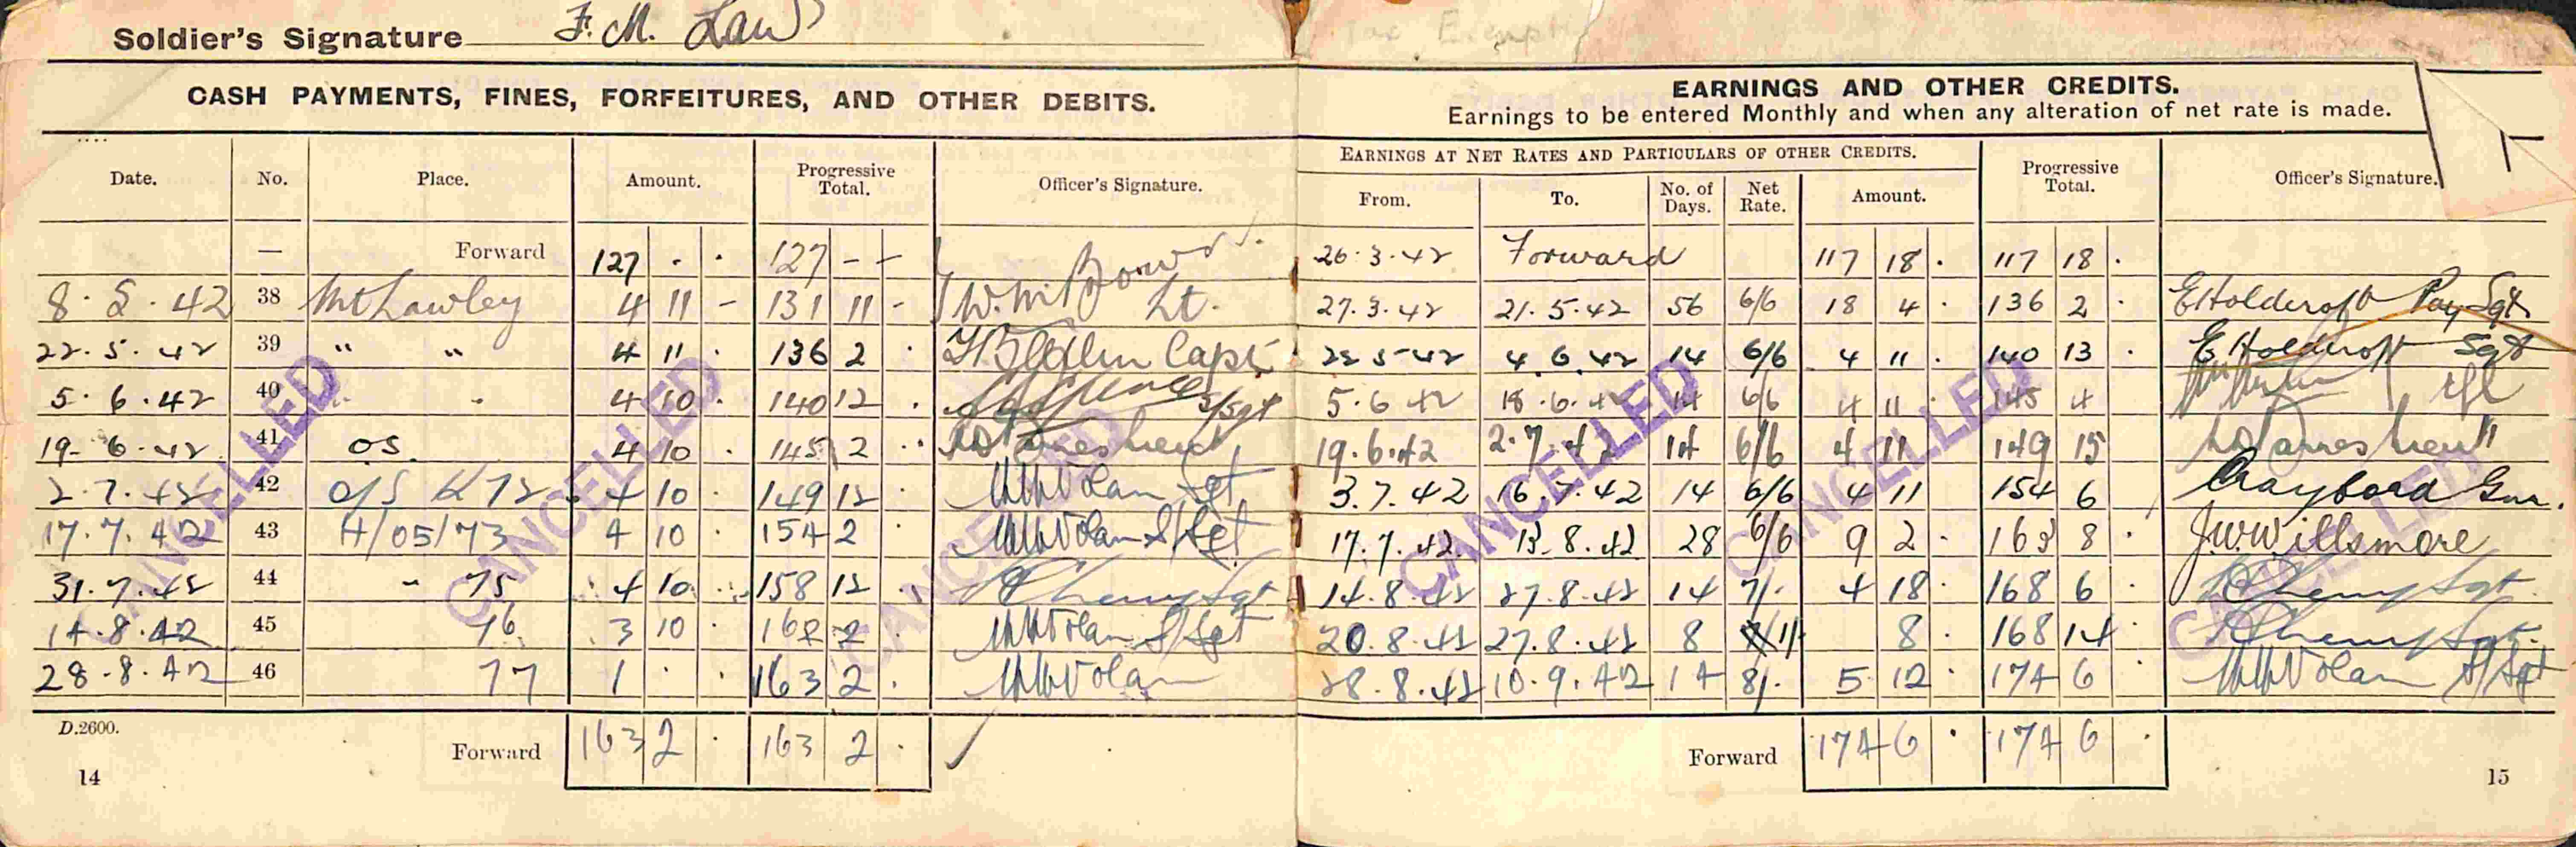 Soldier's Signature F. M. Law
CASH PAYMENTS, FINES, FORFEITURES, AND OTHER DEBITS.
Date. No. Place. Amount. Progressive Total. Officer's Signature.
— Forward 127 . . 127 - -
8.5.42 38 Mt Lawley 4 11 - 131 11 - Lt.
22.5.42 39 " " 4 11 . 136 2 . Capt
5.6.42 40 . . 4 10 . 140 12 . S/Sgt
19-6.42 41 OS. 4 10 . 145 2 .
2.7.42 42 O/S 4 10 . 149 12 . Sgt
17.7.42 43 H/05/73 4 10 154 2 . S/Sgt
31.7.42 44 " 75 4 10 . 158 12 . Sgt
14.8.42 45 76 3 10 . 162 2 . S/Sgt
28.8.42 46 77 1 . . 163 2 .
D.2600.
Forward 163 2 . 163 2 .
14
EARNINGS AND OTHER CREDITS.
Earnings to be entered Monthly and when any alteration of net rate is made.
EARNINGS AT NET RATES AND PARTICULARS OF OTHER CREDITS.
From. To. No. of Days. Net Rate. Amount. Progressive Total. Officer's Signature.
26.3.42 Forward 117 18 . 117 18 .
27.3.42 21.5.42 56 6/6 18 4 . 136 2 . E Holdcroft Pay Sgt
22 5-42 4.6.42 14 6/6 4 11 . 140 13 . E Holdcroft Sgt
5.6 42 18.6.42 14 6/6 4 11 . 145 4
19.6.42 2.7.42 14 6/6 4 11 149 15
3.7.42 16.7.42 14 6/6 4 11 154 6
17.7.42. 13.8.42 28 6/6 9 2 . 163 8 . J.W. Willsmore
14.8.42 27.8.42 14 7/. 4 18 . 168 6 . Sgt.
20.8.42 27.8.42 8 1/ 8 . 168 14 . Sgt.
28.8.42 10.9.42 14 8/. 5 12 . 174 6 . S/Sgt
Forward 174 6 . 174 6 .
15
CANCELLED
CANCELLED
CANCELLED
CANCELLED
CANCELLED
CANCELLED